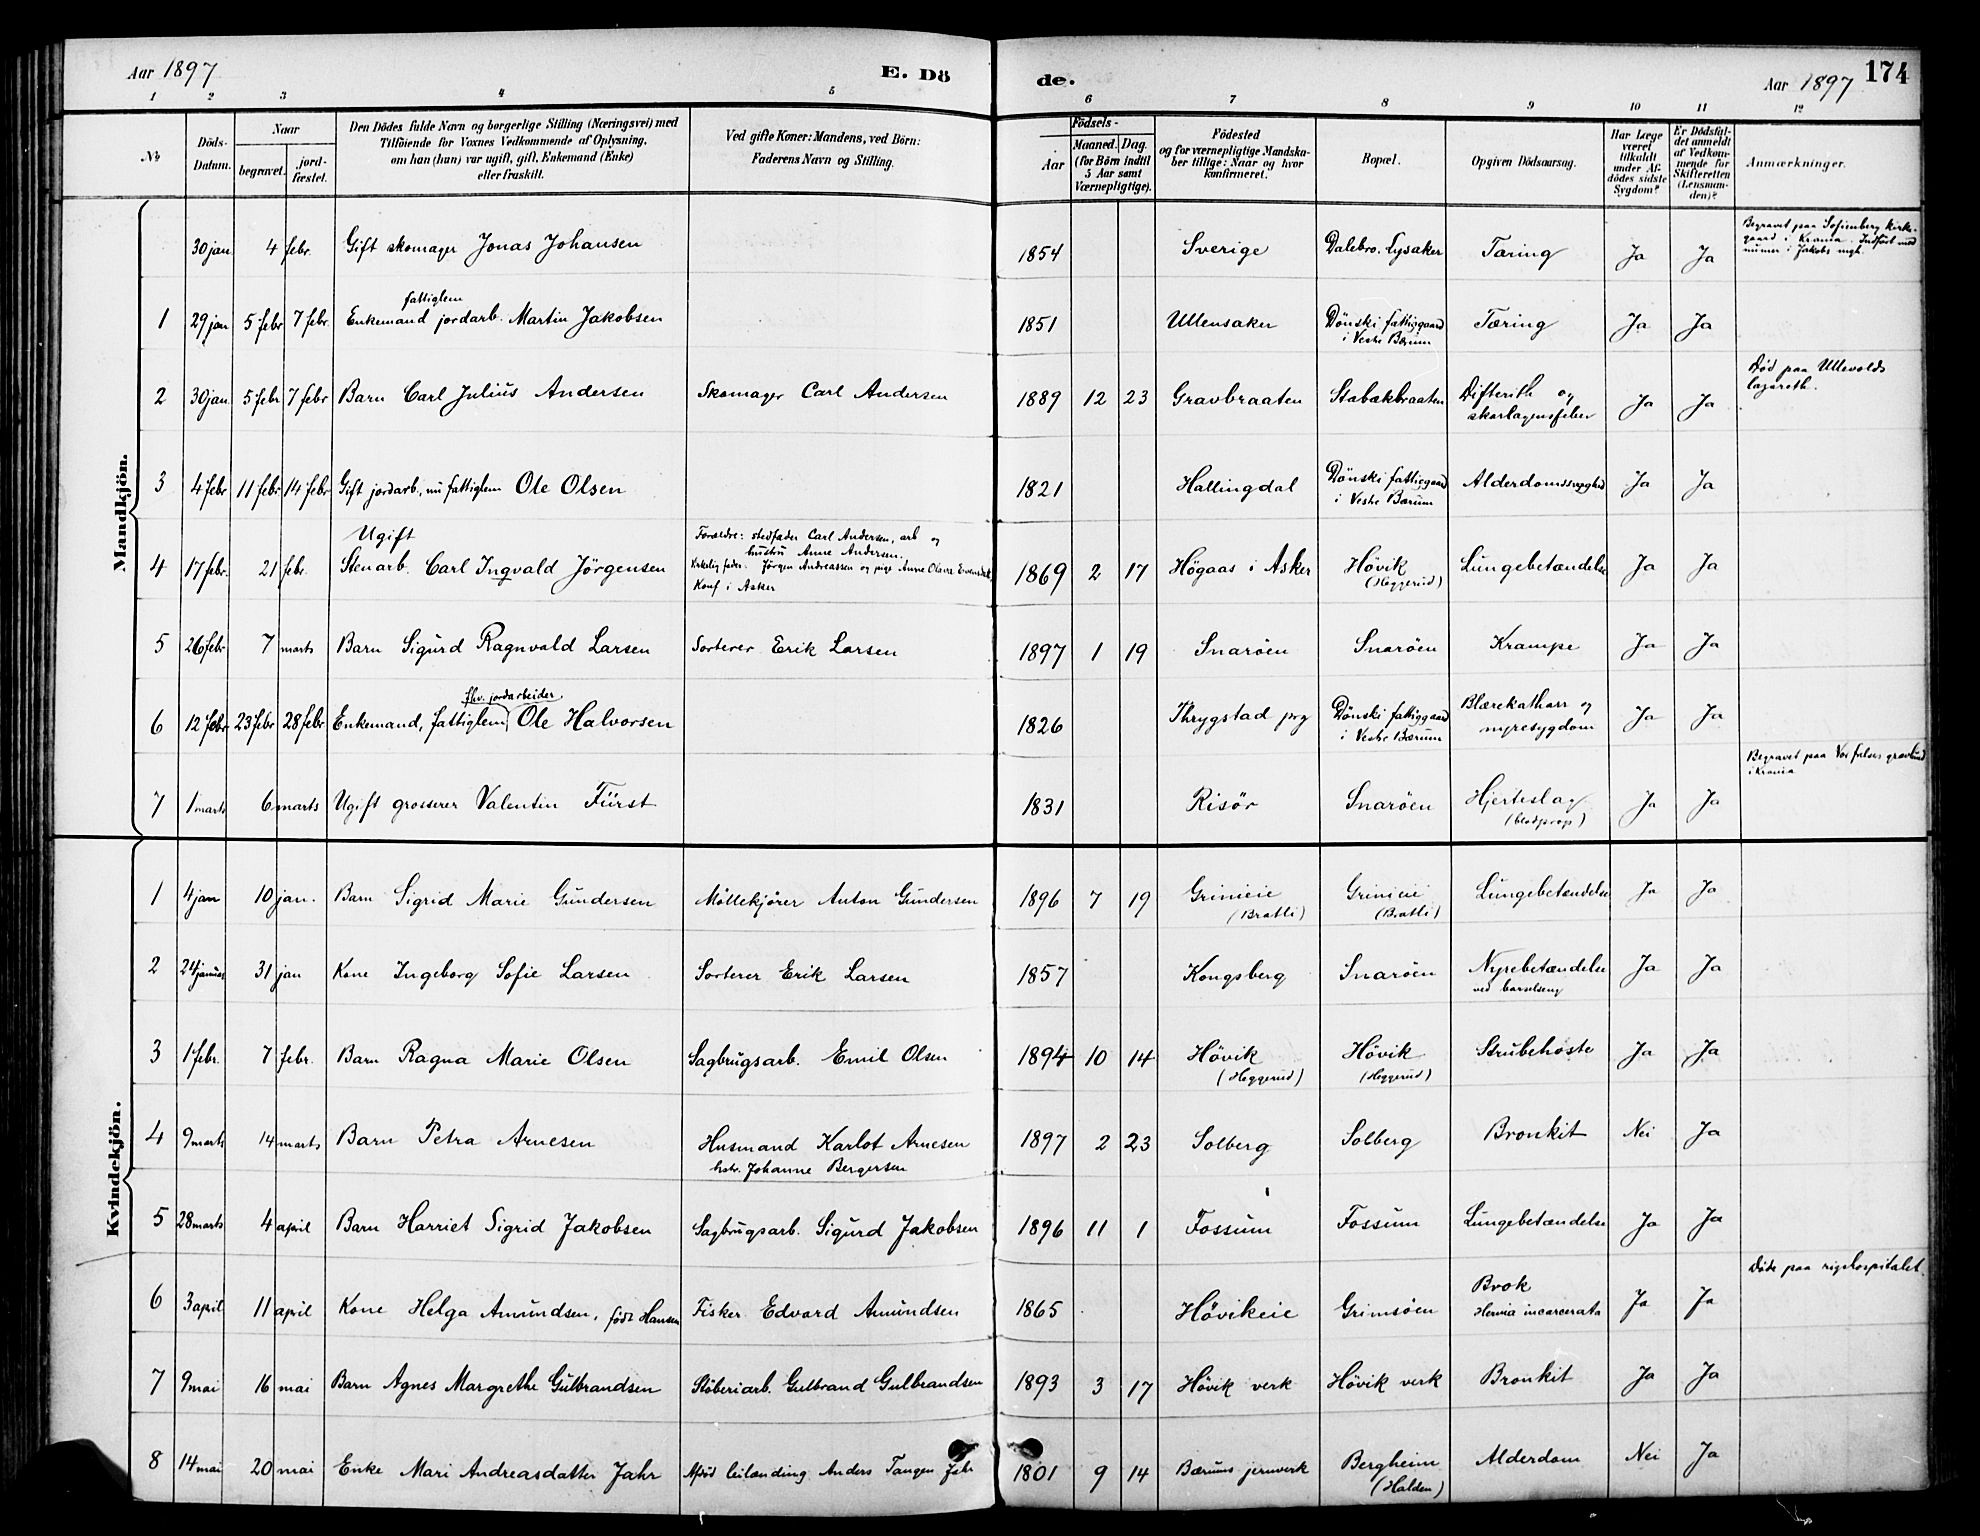 Aar 1897
E. Dö
de.
Aar 1897
174
1 2 3 4 5 6 7 8 9 10 11 12
No
Döds-Datum.
Naar
begravet.
jord-fæstet.
Den Dödes fulde Navn og borgerlige Stilling (Næringsvei) med
Tilföiende for Voxnes Vedkommende af Oplysning,
om han (hun) var ugift, gift, Enkemand (Enke)
eller fraskilt.
Ved gifte Koner: Mandens, ved Börn:
Faderens Navn og Stilling.
Födsels-
Aar
Maaned. Dag.
(for Börn indtil
5 Aar samt
Værnepligtige).
Födested
og for værnepligtige Mandska-
ber tillige: Naar og hvor
konfirmeret.
Bopæl.
Opgiven Dödsaarsag.
Har Læge
været
tilkaldt
under Af-
dödes sidste
Sygdom?
Er Dödsfal-
det anmeldt
af Vedkom-
mende for
Skifteretten
(Lensman-
den)?
Anmærkninger.
Mandkjön.
30 jan 4 febr. Gift skomager Jonas Johansen 1854 Sverige Dalebro. Lysaker Tæring Ja Ja
Begravet paa Sofienberg kirke-
gaard i Krania. Indført med
numer i Jakobs mgh.
fattiglem
1 29 jan 5 febr 7 febr. Enkemand jordarb. Martin Jakobsen 1851 Ullensaker Dönski fattiggaard Tæring Ja Ja
i Vestre Bærum
2 30 jan 5 febr 7 febr Barn Carl Julius Andersen Skomager Carl Andersen 1889 12 23 Gravbraaten Stabækbraaten Difterith og Ja Ja
skarlagensfeber
Død paa Ullevolds
lazareth.
3 4 febr 11 febr 14 febr Gift jordarb., nu fattiglem Ole Olsen 1821 Hallingdal Dönski fattiggaard Alderdomssvaghed Ja Ja
i Vestre Bærum
Ugift
4 17 febr. 21 febr. Stenarb. Carl Ingvald Jörgensen
Forældre: stedfader Carl Andersen, arb og
hustru Anne Andersen.
Jörgen Andreassen og pige Anne Olava
Konf i Asker
1869 2 17 Högaas i Asker Hövik Lungebetændelse Ja Ja
(Heggerud)
5 26 febr 7 marts Barn Sigurd Ragnvald Larsen Sorterer Erik Larsen 1897 1 19 Snaröen Snaröen Krampe Ja Ja
fhv. jordarbeider
6 12 febr 23 febr 28 febr Enkemand, fattiglem, Ole Halvorsen 1826 Thrygstad prg Dönski fattiggaard Blærekatharr og Ja Ja
i Vestre Bærum nyresygdom
7 1 marts 6 marts Ugift grosserer Valentin Fürst 1831 Risör Snaröen Hjerteslag Ja Ja
(blodprop)
Begravet paa Vor frelsers gravlund
i Krania
Kvindekjön.
1 4 jan 10 jan. Barn Sigrid Marie Gundersen Möllekjörer Anton Gundersen 1896 7 19 Grinieie Grinieie Lungebetændelse Ja Ja
(Bratli) (Bratli)
2 24 januar 31 jan Kone Ingeborg Sofie Larsen Sorterer Erik Larsen 1857 Kongsberg Snaröen Nyrebetændelse Ja Ja
ved barselseng
3 1 febr. 7 febr. Barn Ragna Marie Olsen Sagbrugsarb. Emil Olsen 1894 10 14 Hövik Hövik Strubehoste Ja Ja
(Heggerud) (Heggerud)
4 9 marts 14 marts Barn Petra Arnesen Husmand Karlot Arnesen 1897 2 23 Solberg Solberg Bronkit Nei Ja
hstr. Johanne Bergersen
5 28 marts 4 april Barn Harriet Sigrid Jakobsen Sagbrugsarb. Sigurd Jakobsen 1896 11 1 Fossum Fossum Lungebetændelse Ja Ja
6 3 april 11 april Kone Helga Amundsen, född Hansen Fisker Edvard Amundsen 1865 Hövikeie Grimsöen Brok Ja Ja
Hernia incarcerata
Døde paa rigshospitalet.
7 9 mai 16 mai Barn Agnes Margrethe Gulbrandsen Støberiarb. Gulbrand Gulbrandsen 1893 3 17 Hövik verk Hövik verk Bronkit Ja Ja
8 14 mai 20 mai Enke Mari Andreasdatter Jahr Afdöd leilænding Anders Tangen Jahr 1801 9 14 Bærums jernverk Bergheim Alderdom Nei Ja
(Halden)